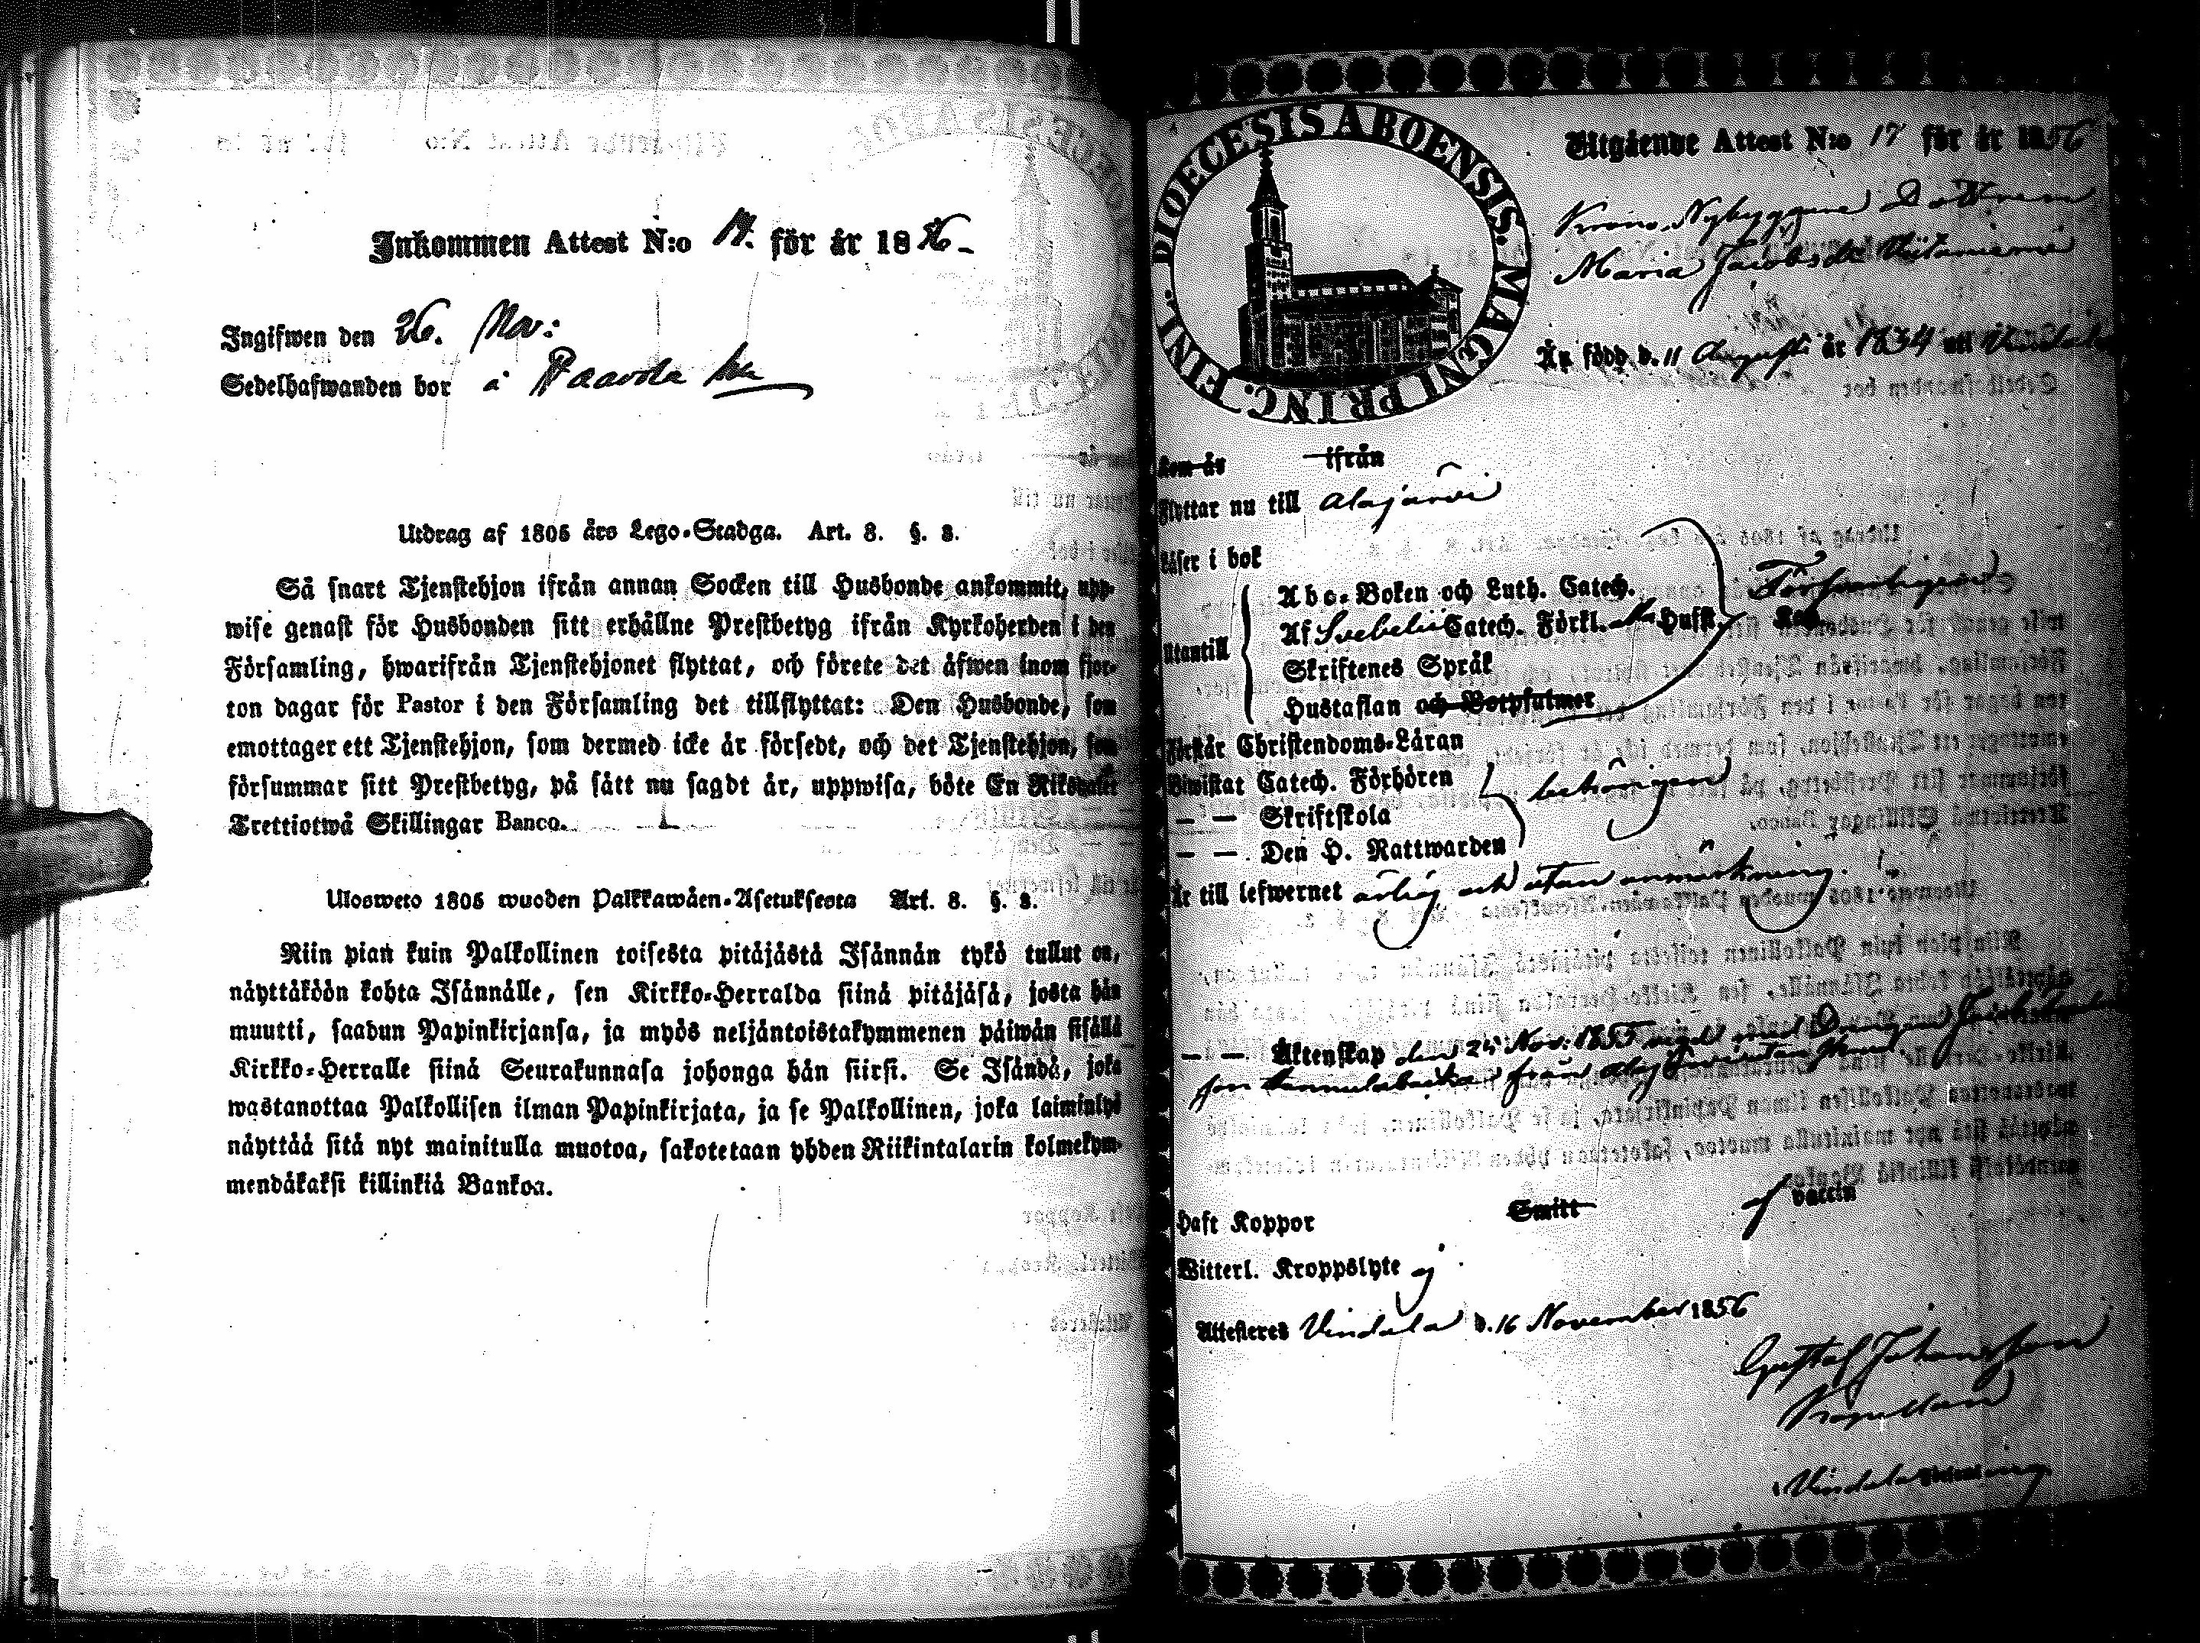 Inkommen Attest N:o 14. för år 1856 -
Ingifwen den 26. Nov:
Sedelhafwanden bor å Paavola
Utdrag af 1805 års Lego-Stadga. Art. 8. §. 8.
Så snart Tjenstehjon ifrån annan Socken till Husbonde ankommit, upp-
wise genast för Husbonden sitt erhållne Prestbetyg ifrån Kyrkoherden i den
Församling, hwarifrån Tjenstehjonet flyttat, och förete det äfwen inom fjor-
ton dagar för Pastor i den Församling det tillflyttat: Den Husbonde, som
emottager ett Tjenstehjon, som dermed icke är försedt, och det Tjenstehjon, som
försummar sitt Prestbetyg, på sätt nu sagdt är, uppwisa, böte En Riksdaler
Trettiotwå Skillingar Banco.
Ulosweto 1805 wuoden Palkkawäen-Asetuksesta Art. 8. §. 8.
Niin pian kuin Palkollinen toisesta pitäjästä Isännän tykö tullut on,
näyttäköön kohta Isännälle, sen Kirkko-Herralda siinä pitäjäsä, josta hän
muutti, saadun Papinkirjansa, ja myös neljäntoistakymmenen päiwän sisällä
Kirkko-Herralle siinä Seurakunnasa johonga hän siirsi. Se Isändä, joka
wastanottaa Palkollisen ilman Papinkirjata, ja se Palkollinen, joka laiminlyö
näyttää sitä nyt mainitulla muotoa, sakotetaan yhden Riikintalarin kolmekym-
mendäkaksi killinkiä Bankoa.
DIOECESIS ABOENSIS. MAGNI PRINC. FINL.
Utgående Attest N:o 17 för år 1856
Krono Nybyggare Dottren
Maria Jacobsdr
Är född d. 11 Augusti år 1834 uti Vindala
Kom år ifrån
Flyttar nu till Alajärvi
Läser i bok
Abc-Boken och Luth. Catech.
Utantill Af Svebelii Catech. Förkl. Hust. Församlingen
Skriftenes Språk
Hustaflan och Botpsalmer
Förstår Christendoms-Läran
Biwistat Catech. Förhören behörigen
— — Skriftskola
— — Den H. Nattwarden
Är till lefwernet ärlig och utan anmärkning.
— — Äktenskap den 25 Nov: 1855 med Drengen Jacob
son från Alajärvi
Haft Koppor Smitt vaccin
Witterl. Kroppslyte ej
Attesteres Vindala d. 16 November 1856
Gustaf Johansson
Kapellan
Vindala